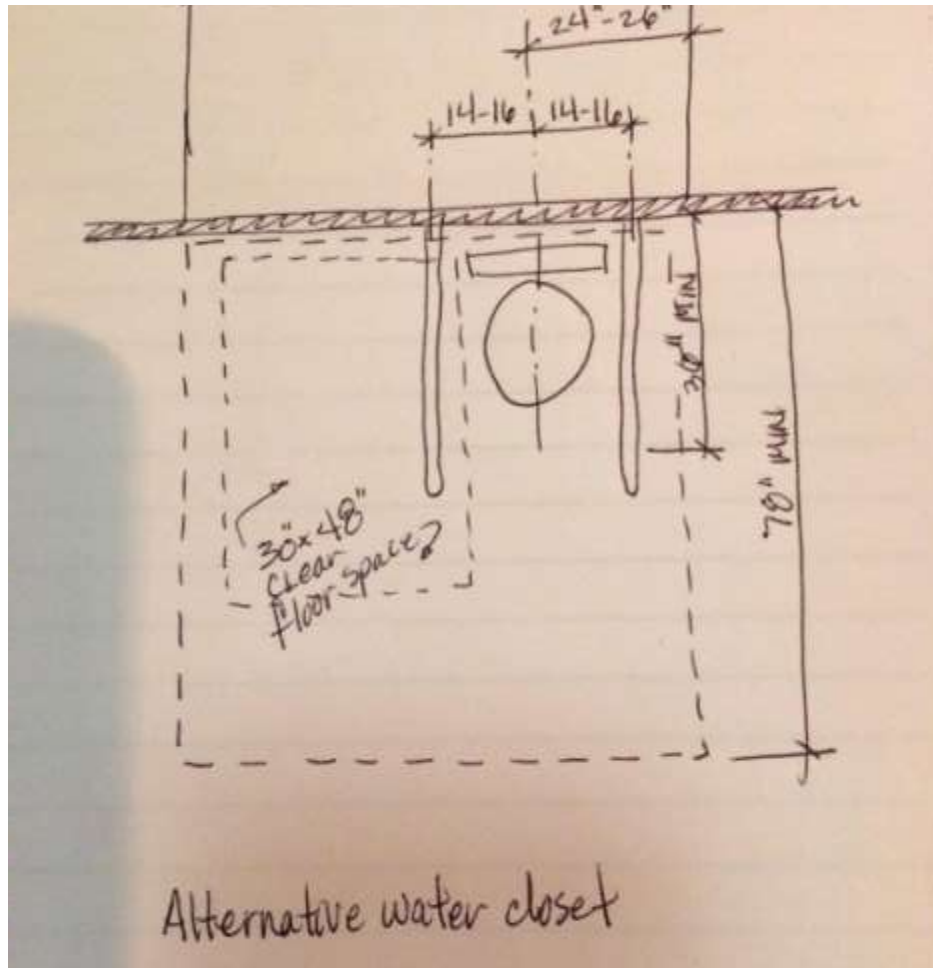 24"-26"
14-16 14-16
36" MIN
78" MIN
30"x48"
clear
floor space?
Alternative water closet